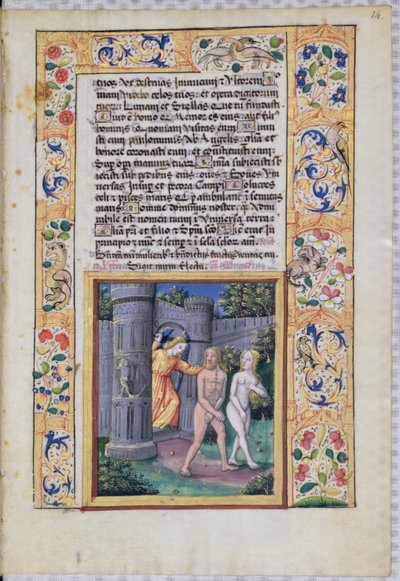 14
tuos Ut destruas Inimicum et Ultorem Q
niam Videbo celos tuos: et opera digitorum
tuor: Lunam et Stellas Que tu fundasti
Quid e homo Q memor es eius: aut fili9
hominis Quoniam Visitas eum Minui
sti eum paulominus Ab Angelis: gloria et
honore coronasti eum: et constituisti eum
Sup opa manuu tuar: Omnia subiecisti
sub pedibus eius: oues et Boues Uni
uersas Insup et pecora Campi Volucres
celi et pisces maris: q pambulant semitas
maris Domine dominus noster: q Admi
rabile est nomen tuum i Universa terra:
Gloria pri et filio et Spui sco Sicut erat In
principio et nuc et semp et i secla sclor am.
i mulierib9 et bndictus fructus ventris tui
Sicut mirra Electa.